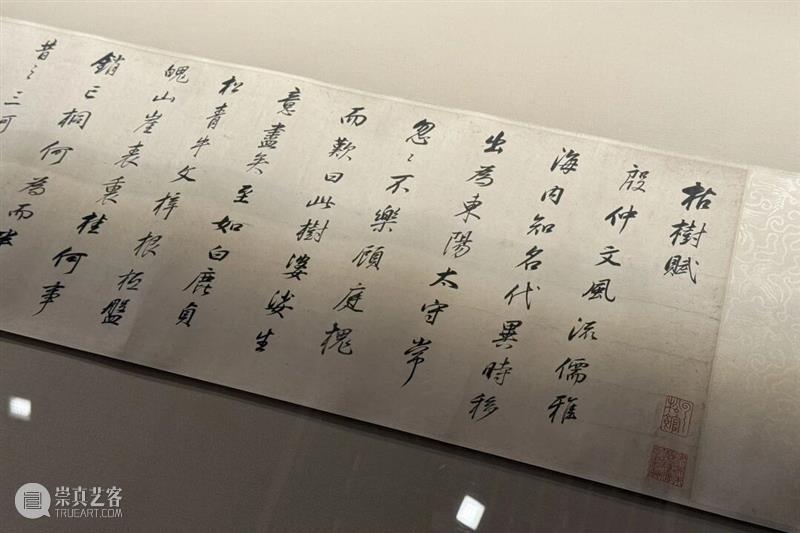 枯樹賦
殷仲文風流儒雅
海内知名代異時移
出為東陽太守常
忽〻不樂顧庭槐
而歎曰此樹婆娑生
意盡矣至如白鹿貞
松青牛文梓根柢盤
魄山崖表裏桂何事
銷亡桐何為而半
昔之三河
崇真艺客
TRUEART.COM